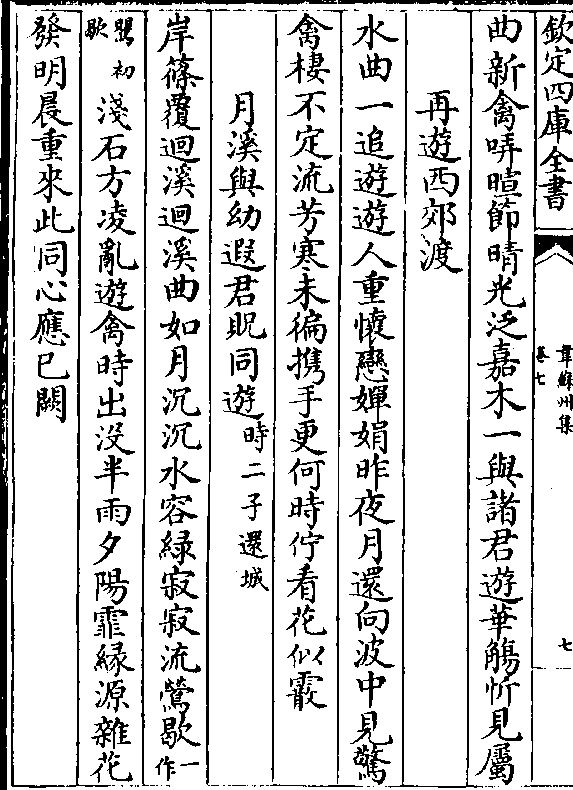 欽定四庫全書
韋蘇州集
卷七
七
曲新禽哢暄節晴光泛嘉木一與諸君遊華觴忻見屬
再遊西郊渡
水曲一追遊遊人重懷戀嬋娟昨夜月還向波中見驚
禽棲不定流芳寒未徧携手更何時佇看花似霰
月溪與幼遐君貺同遊時二子還城
岸篠覆迴溪迴溪曲如月沉沉水容緑寂寂流鶯歇一作
鸎初歇淺石方凌亂遊禽時出没半雨夕陽霏縁源雜花
發明晨重來此同心應已闕